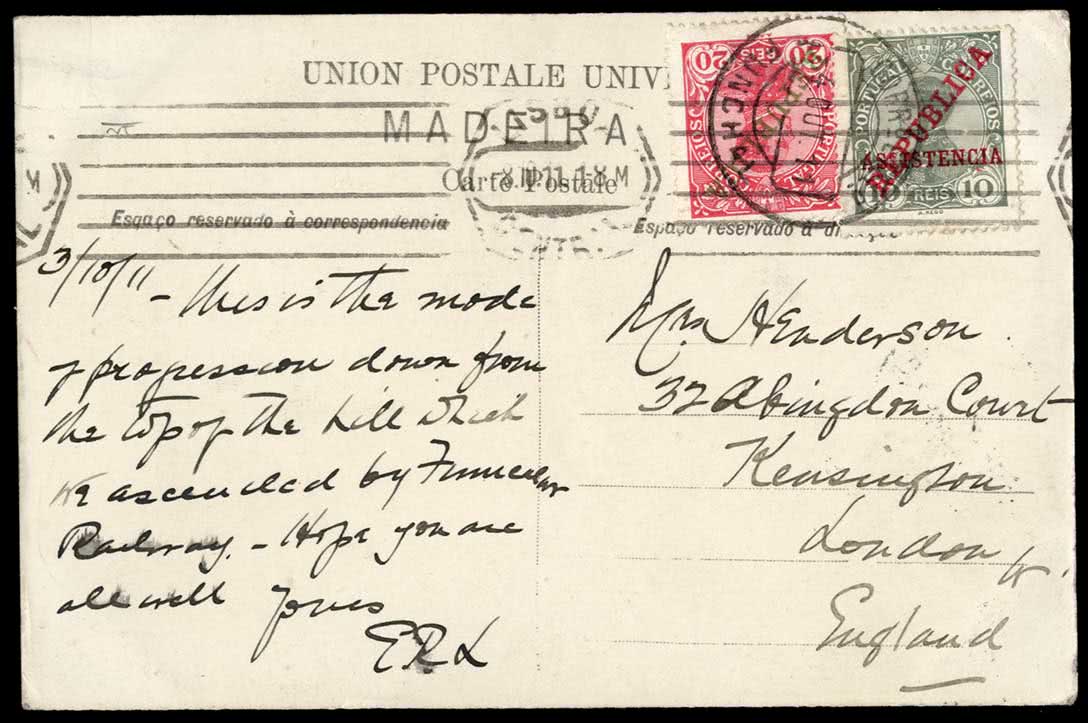 UNION POSTALE UNIV
MADEIRA
Carte Postale
Espaço reservado à correspondencia
Espaço reservado á
20 REIS 20
CORREIOS PORTUGAL
REPUBLICA
FUNCHAL
PORTUGAL CORREIOS
REPUBLICA
ASSISTENCIA
10 REIS 10
3/10/11 - This is the mode
of progression down from
the top of the hill which
we ascended by Funicular
Railway. - Hope you are
all well Yours
ERL
Mrs Henderson.
32 Abingdon Court
Kensington
London W.
England